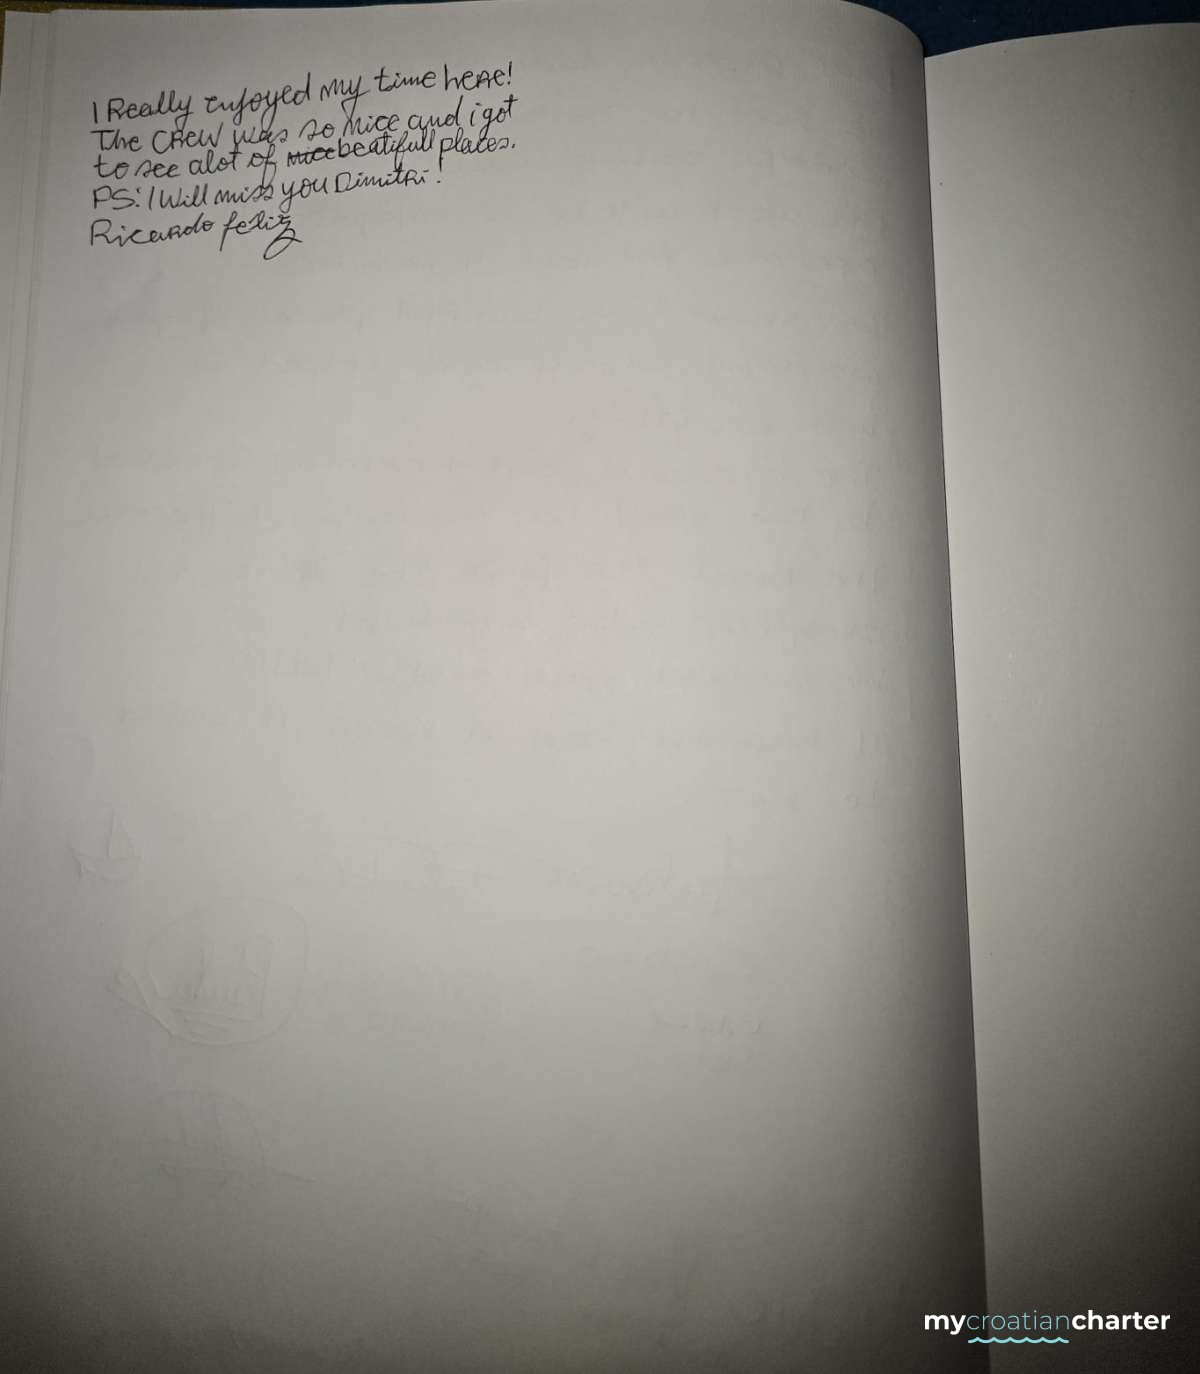 I Really enjoyed my time here!
The crew was so nice and i got
to see alot of nice beatifull places.
PS: I Will miss you Dimitri!
Ricardo feliz
mycroatiancharter